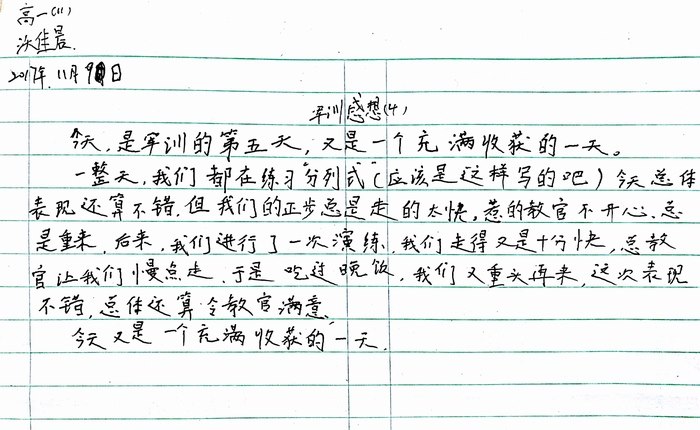 高一(1)
沈佳晨.
2017年.11月9日
军训感想(4)
今天,是军训的第五天,又是一个充满收获的一天。
一整天,我们都在练习分列式(应该是这样写的吧)今天总体
表现还算不错,但我们的正步总是走的太快,惹的教官不开心.总
是重来,后来,我们进行了一次演练,我们走得又是十分快,总教
官让我们慢点走.于是吃过晚饭,我们又重头再来,这次表现
不错,总体还算令教官满意.
今天又是一个充满收获的一天.